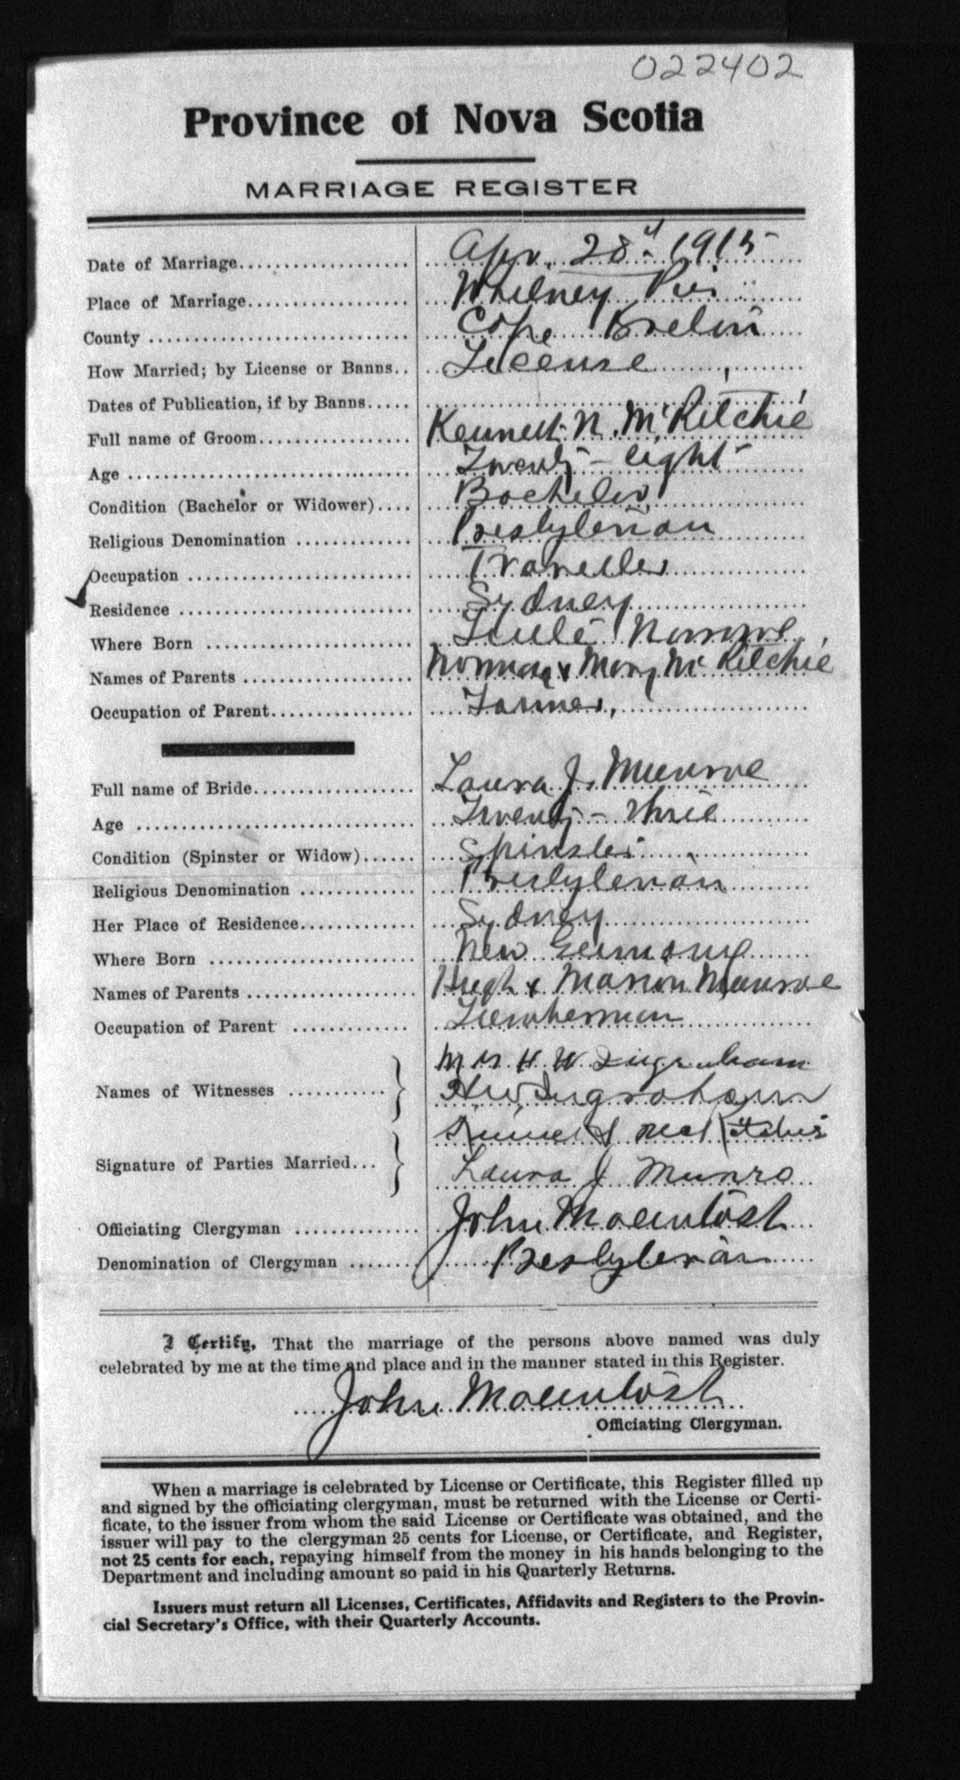 022402
Province of Nova Scotia
MARRIAGE REGISTER
Date of Marriage Apr. 28 1915
Place of Marriage Whitney Pier
County Cape Breton
How Married; by License or Banns.. License
Dates of Publication, if by Banns
Full name of Groom Kenneth N. McRitchie
Age Twenty-eight
Condition (Bachelor or Widower) Bachelor
Religious Denomination Presbyterian
Occupation Traveller
Residence Sydney
Where Born Little Narrows
Names of Parents Norman & Mary McRitchie
Occupation of Parent Farmer,
Full name of Bride Laura J. Munroe
Age Twenty-three
Condition (Spinster or Widow) Spinster
Religious Denomination Presbyterian
Her Place of Residence Sydney
Where Born New Germany
Names of Parents Hugh & Marion Munroe
Occupation of Parent Lumberman
Names of Witnesses Mrs H W Ingraham
HW Ingraham
Signature of Parties Married
Laura J Munro
Officiating Clergyman John Macintosh
Denomination of Clergyman Presbyterian
I Certify, That the marriage of the persons above named was duly
celebrated by me at the time and place and in the manner stated in this Register.
John Macintosh
Officiating Clergyman.
When a marriage is celebrated by License or Certificate, this Register filled up
and signed by the officiating clergyman, must be returned with the License or Certi-
ficate, to the issuer from whom the said License or Certificate was obtained, and the
issuer will pay to the clergyman 25 cents for License, or Certificate, and Register,
not 25 cents for each, repaying himself from the money in his hands belonging to the
Department and including amount so paid in his Quarterly Returns.
Issuers must return all Licenses, Certificates, Affidavits and Registers to the Provin-
cial Secretary's Office, with their Quarterly Accounts.